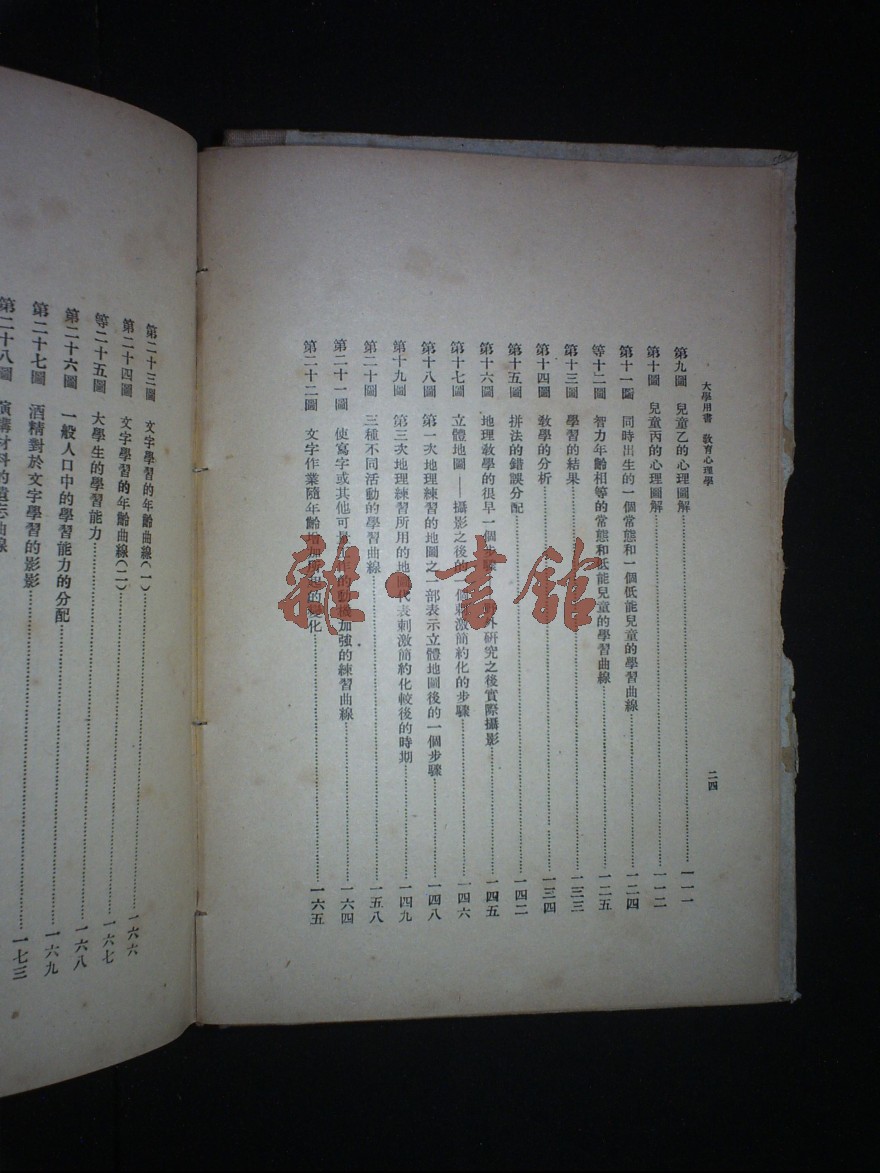 大學用書 教育心理學
二四
第九圖 兒童乙的心理圖解 一一一
第十圖 兒童丙的心理圖解 一一二
第十一圖 同時出生的一個常態和一個低能兒童的學習曲線 一二四
等十二圖 智力年齡相等的常態和低能兒童的學習曲線 一二五
第十三圖 學習的結果 一三三
第十四圖 教學的分析 一三四
第十五圖 拼法的錯誤分配 一四二
第十六圖 地理教學的很早一個步驟 野外研究之後實際攝影 一四五
第十七圖 立體地圖——攝影之後的一個刺激簡約化的步驟 一四六
第十八圖 第一次地理練習的地圖之一部表示立體地圖後的一個步驟 一四八
第十九圖 第三次地理練習所用的地圖代表刺激簡約化較後的時期 一四九
第二十圖 三種不同活動的學習曲線 一五八
第二十一圖 使寫字或其他可 工作的動機加強的練習曲線 一六四
第二十二圖 文字作業隨年齡增加所起的變化 一六五
第二十三圖 文字學習的年齡曲線(一)
第二十四圖 文字學習的年齡曲線(二) 一六六
等二十五圖 大學生的學習能力 一六七
第二十六圖 一般人口中的學習能力的分配 一六八
第二十七圖 酒精對於文字學習的影影 一六九
第二十八圖 演講材料的遺忘曲線 一七三
雜·書館